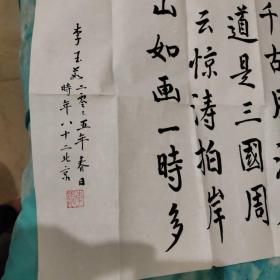 千古
道是三國周
云惊涛拍岸
山如画一時多
李玉 二零〻五年春日
時年八十二北京